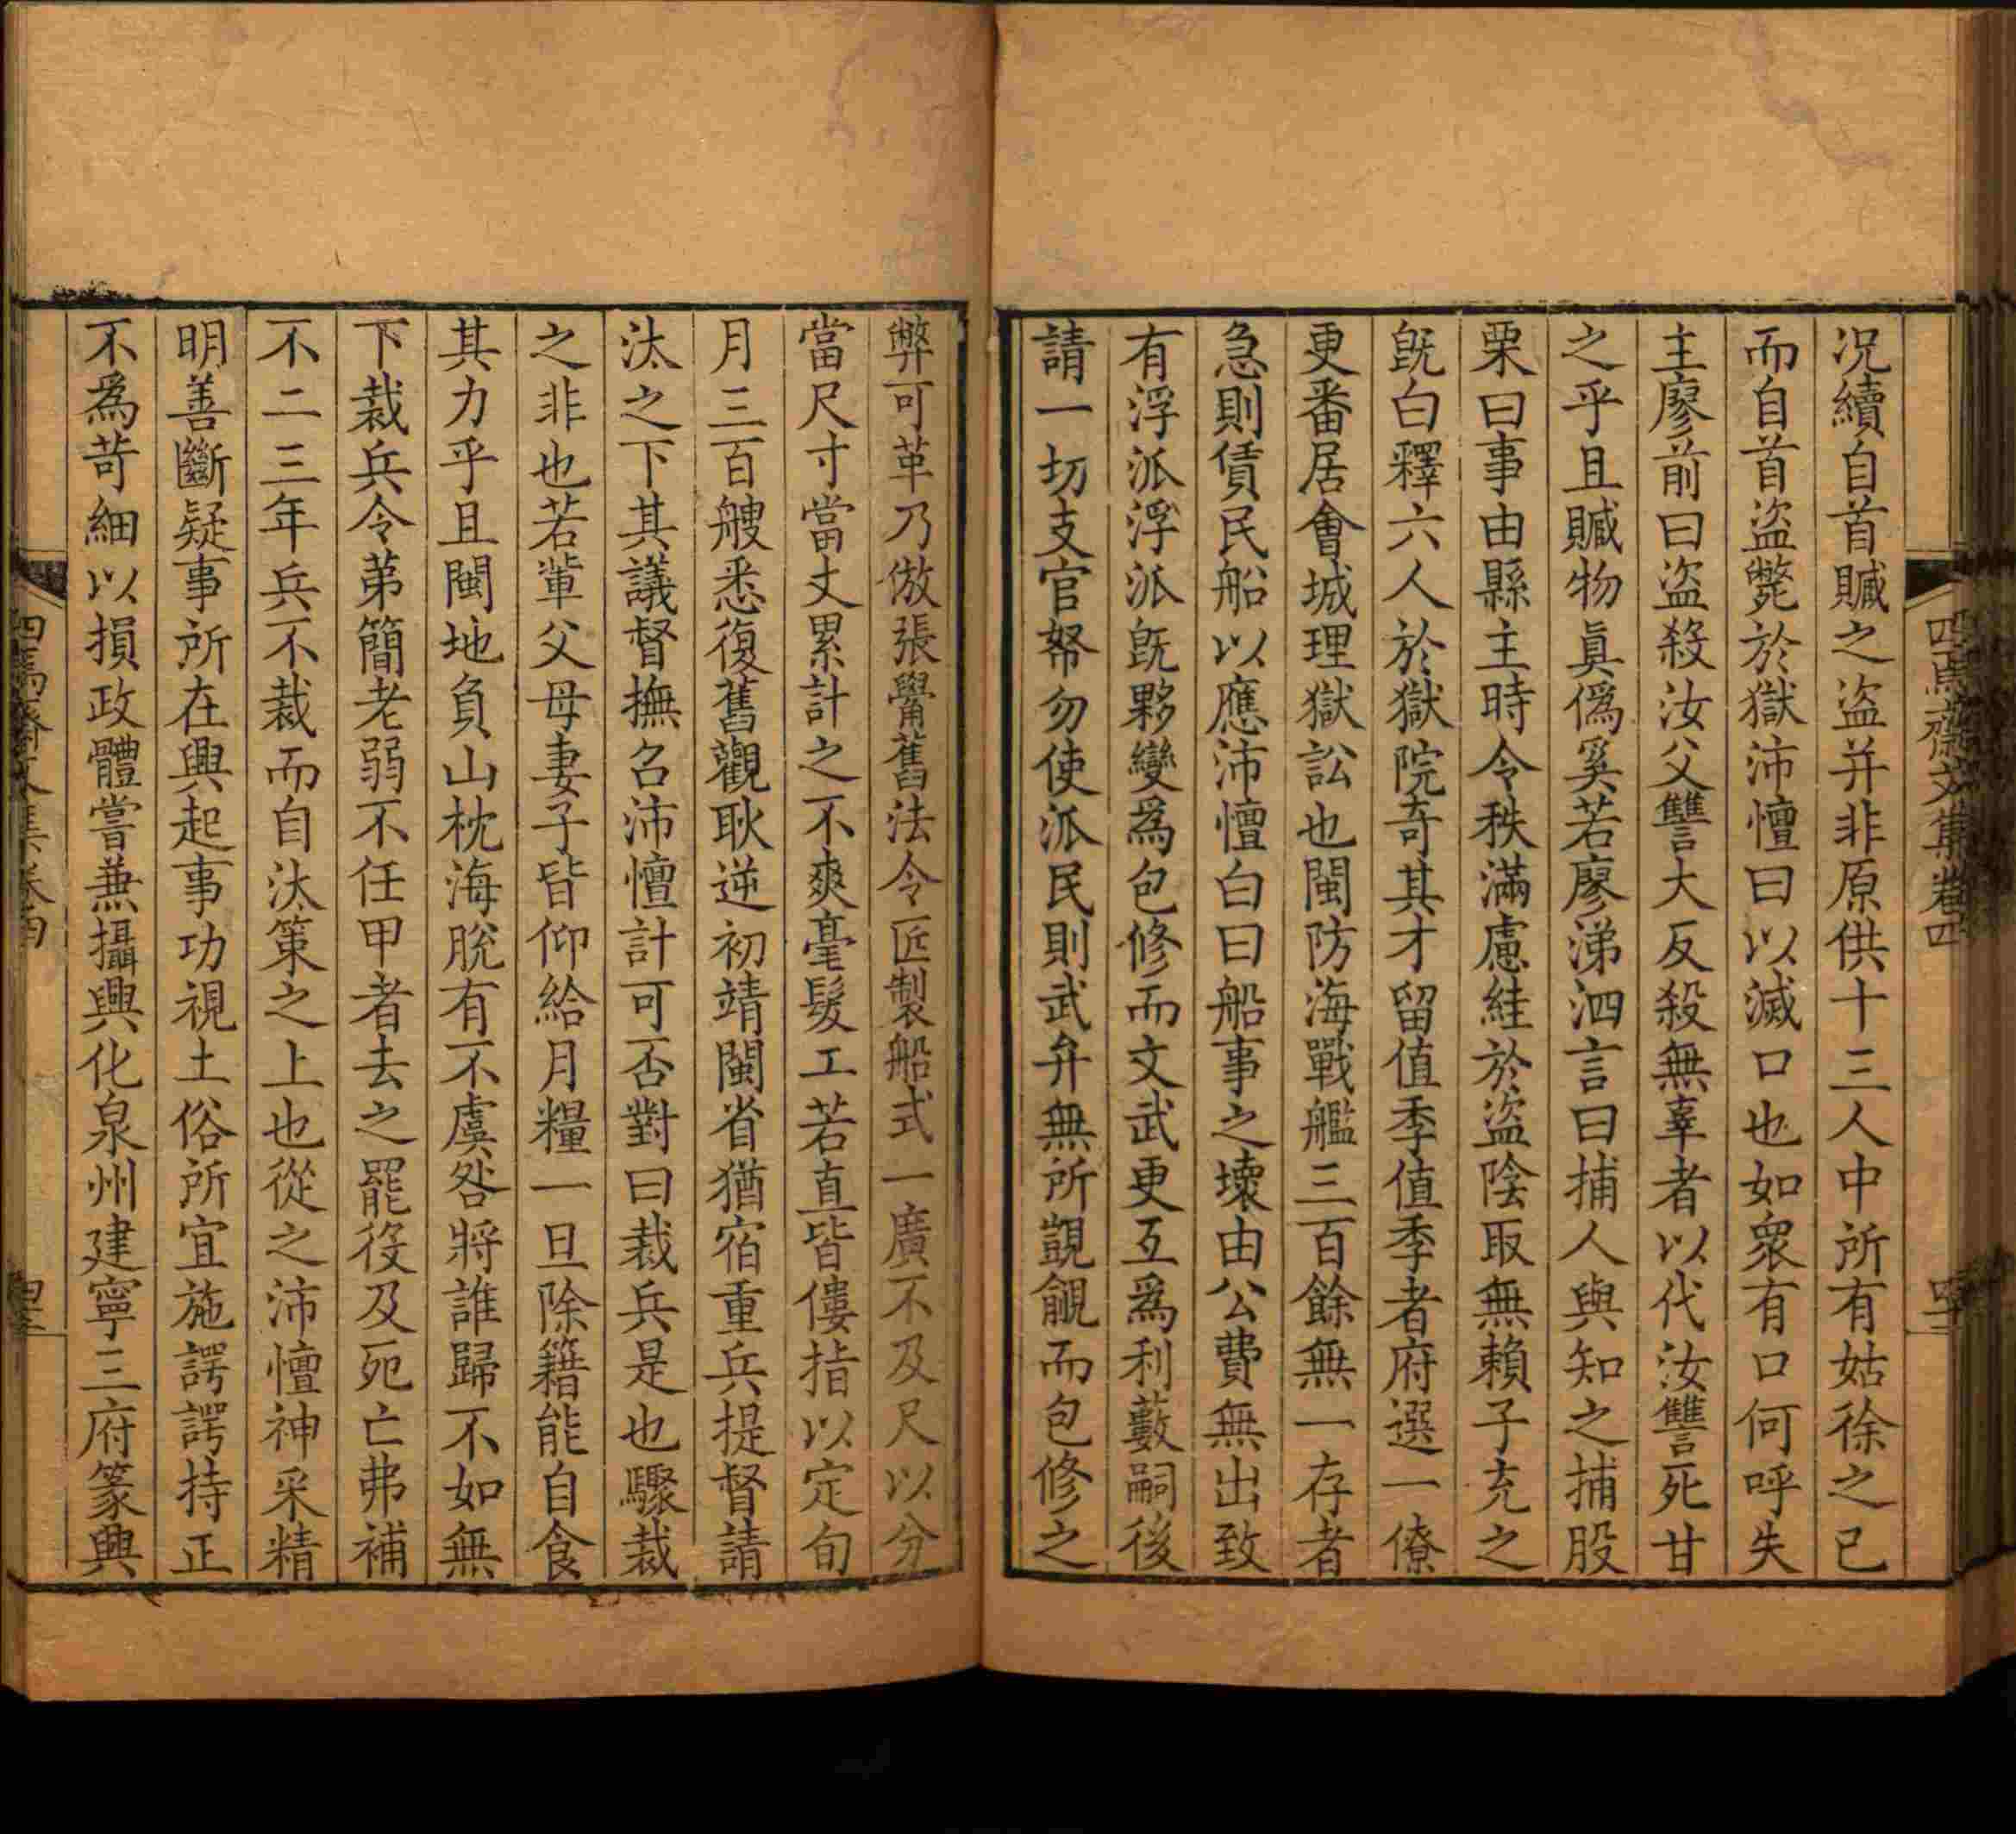 四焉齋文集卷四
况續自首贓之盜并非原供十三人中所有姑徐之已
而自首盜斃於獄沛憻曰以滅口也如衆有口何呼失
主廖前曰盜殺汝父讐大反殺無辜者以代汝讐死甘
之乎且贓物眞僞奚若廖涕泗言曰捕人與知之捕股
栗曰事由縣主時令秩滿慮絓於盜陰取無賴子充之
旣白釋六人於獄院奇其才留值季值季者府選一僚
更番居會城理獄訟也閩防海戰艦三百餘無一存者
急則賃民船以應沛憻白曰船事之壞由公費無出致
有浮派浮派旣夥變爲包修而文武更互爲利藪嗣後
請一切支官帑勿使派民則武弁無所覬覦而包修之
弊可革乃倣張鷽舊法令匠製船式一廣不及尺以分
當尺寸當丈累計之不爽毫髮工若直皆僂指以定旬
月三百艘悉復舊觀耿逆初靖閩省猶宿重兵提督請
汰之下其議督撫召沛憻計可否對曰裁兵是也驟裁
之非也若輩父母妻子皆仰給月糧一旦除籍能自食
其力乎且閩地負山枕海脫有不虞咎將誰歸不如無
下裁兵令苐簡老弱不任甲者去之罷役及死亡弗補
不二三年兵不裁而自汰策之上也從之沛憻神采精
明善斷疑事所在興起事功視土俗所宜施諤諤持正
不爲苛細以損政體嘗兼攝興化泉州建寧三府篆興